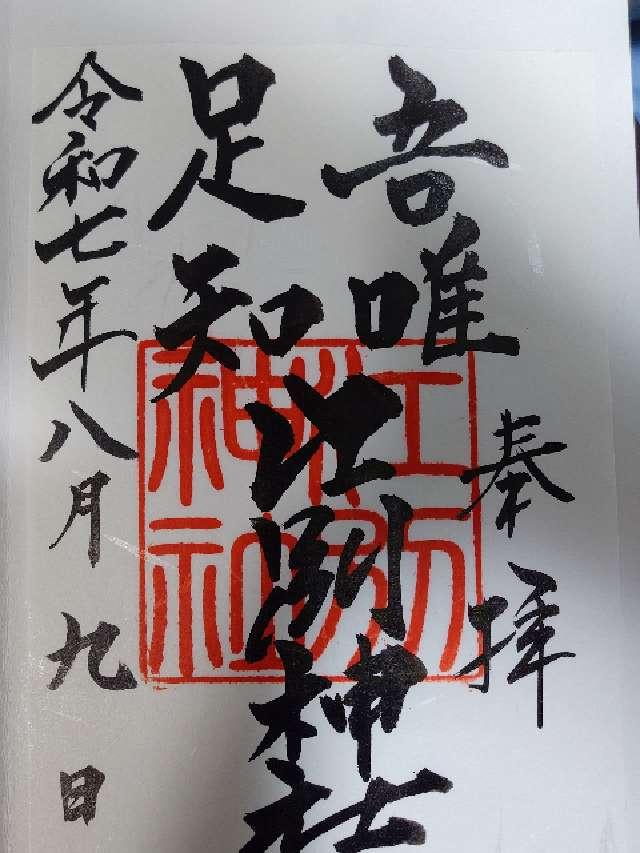 奉拝
吾唯
足知
江別神社
令和七年八月九日
江別
神社